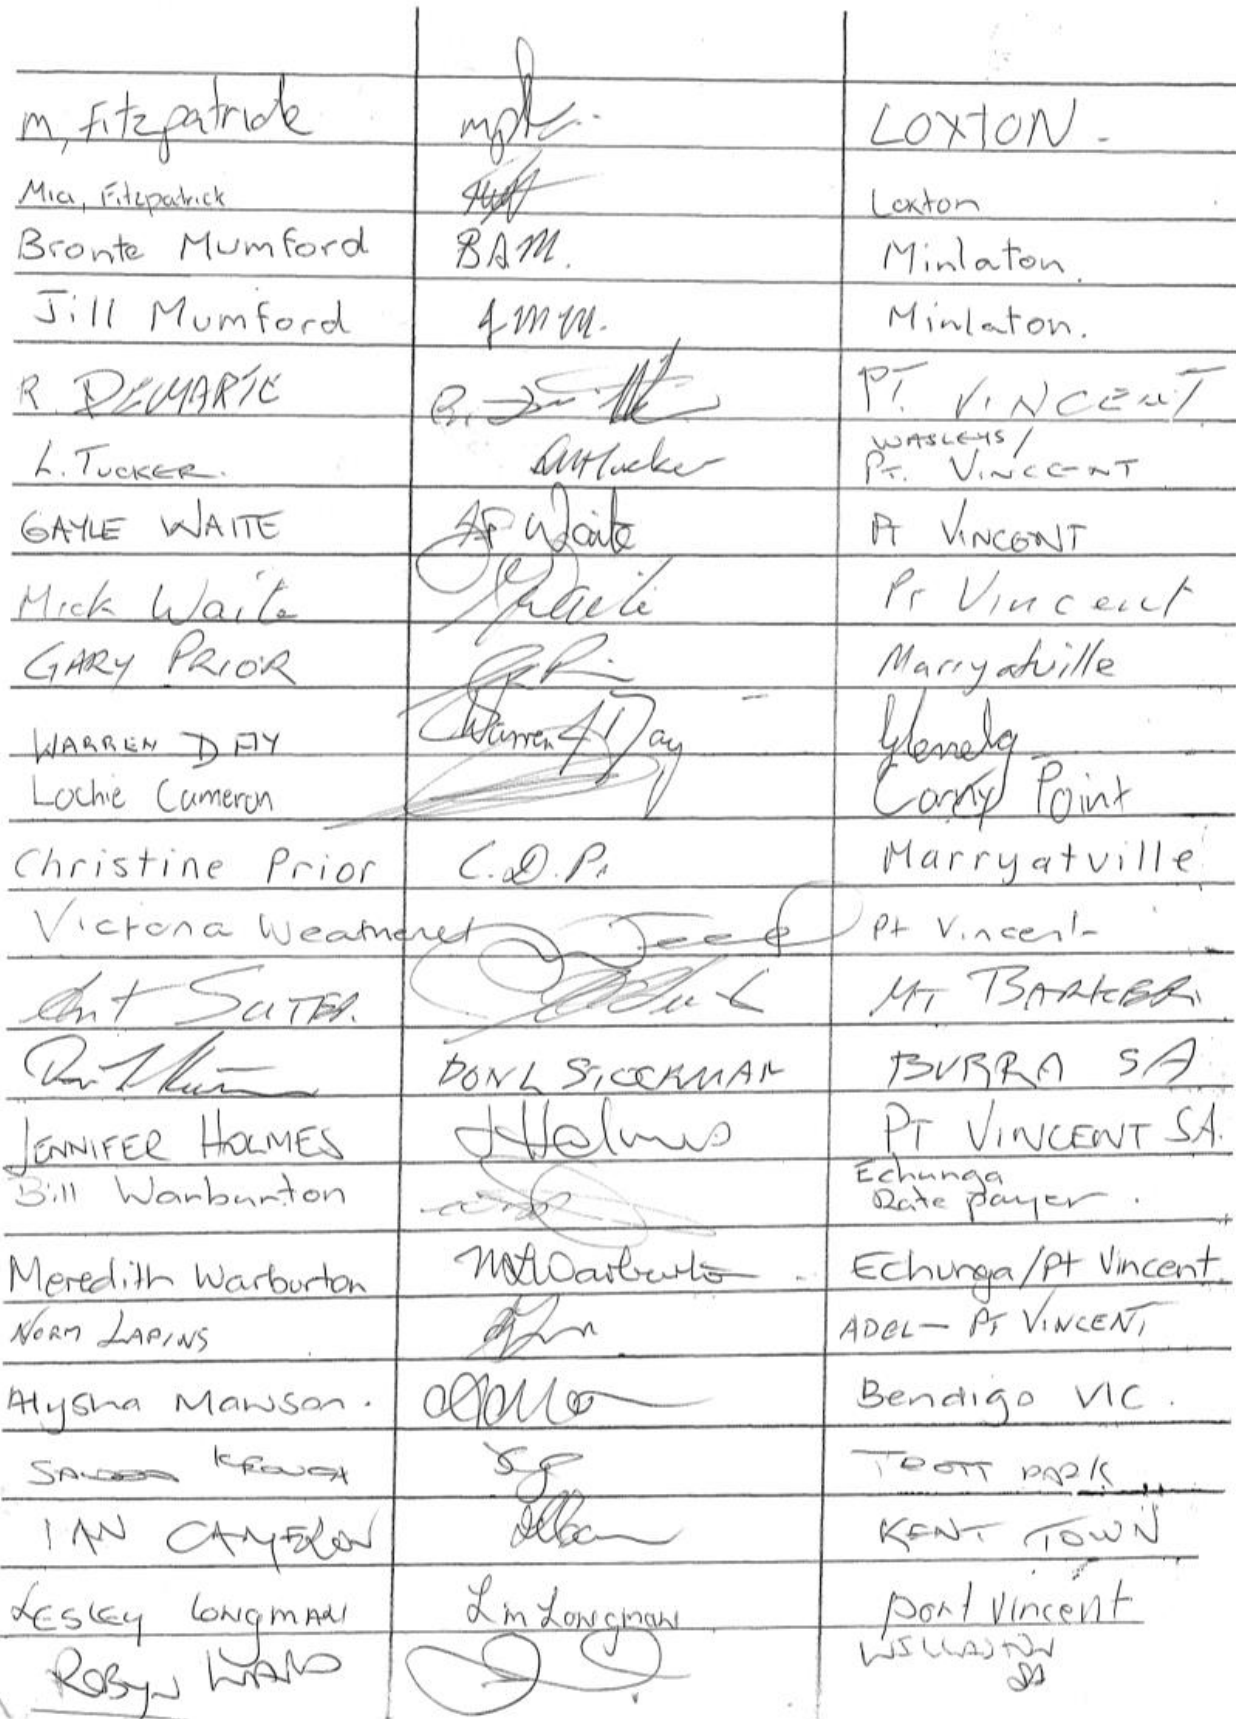 M, Fitzpatrick LOXTON -
Mia, Fitzpatrick Loxton
Bronte Mumford BAM. Minlaton.
Jill Mumford JMM. Minlaton.
R. DEMARTE PT. VINCENT
WASLEYS /
L. TUCKER. Tucker PT. VINCENT
GAYLE WAITE Waite PT VINCENT
Mick Waite Waite PT Vincent
GARY PRIOR Marryatville
WARREN DAY Warren J Day Glenelg
Lochie Cameron Corny Point
Christine Prior C.D.P. Marryatville
Victoria Pt Vincent
SUTER. MT BARKER.
DON L STOCKMAN BURRA SA
JENNIFER HOLMES J Holmes PT VINCENT SA.
Echunga
Bill Warburton Rate payer.
Meredith Warburton Warburton Echunga/Pt Vincent
NORM LAPINS ADEL - PT VINCENT
Alysha Mawson. Bendigo VIC.
TROTT PARK
IAN CAMERON KENT TOWN
LESLEY LONGMAN L M Longman port Vincent
ROBYN WARD WILLASTON
SA